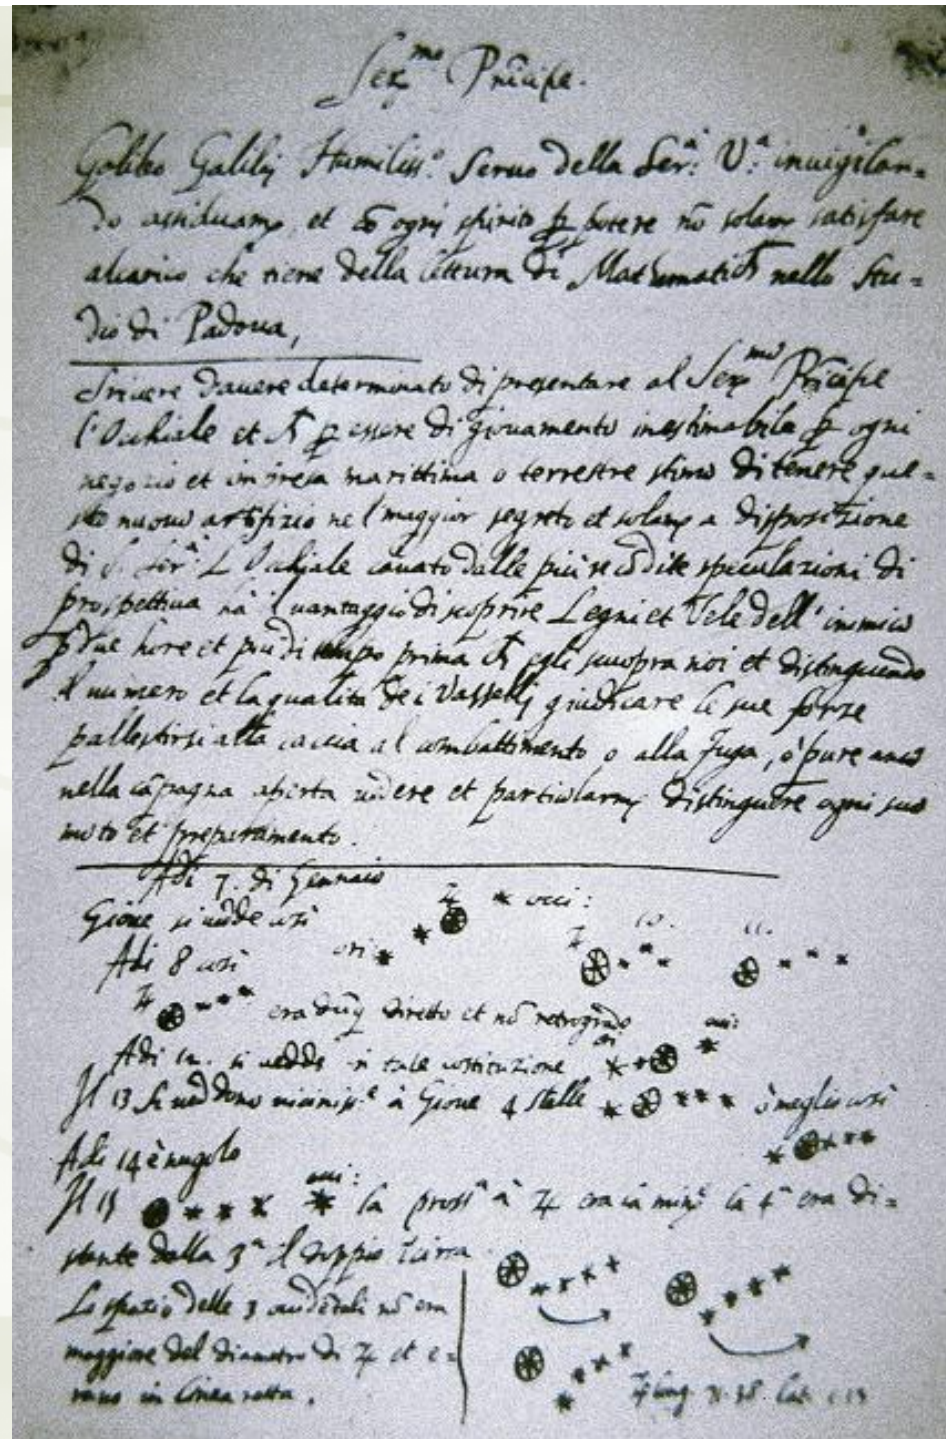 Ser.mo Principe.
Galileo Galilej Humiliss.o Servo della Ser.a V.a inuigilan=
do assiduamte, et cō ogni spirito p potere nō solamte satisfare
alcarico che tiene della lettura di Mathematich nello Stu=
dio di Padoua,
Scriuere dauere determinato di presentare al Ser.mo Prīcipe
l'Occhiale et p essere di giouamento inestimabile p ogni
negozio et impresa marittima o terrestre stimo di tenere que=
sto nuouo artifizio nel maggior segreto et solamte a disposizione
di S. Ser.a L'Occhiale cauato dalle più recōdite speculazioni di
prospettiua ha il uantaggio di scoprire Legni et Vele dell' inimico
p due hore et più di tempo prima ch egli scuopra noi et distinguendo
il numero et la qualità de i Vasselli giudicare le sue forze
pallestirsi alla caccia al combattimento o alla fuga, ò pure anco
nella cāpagna aperta uedere et particularmte distinguere ogni suo
moto et preparamento.
Adi 7. di Gennaio
Gioue si uede cosi ♃ * occ:
ori * *
Adi 8 cosi ♃ 10. 11.
♃ era dūq diretto et nō retrogrado
Adi 12. si uedde in tale costituzione
Il 13 si ueddono uicinisse à Gioue 4 stelle ò meglio così
Adi 14 è nugolo
Il 15 occ: la prossa à ♃ era la mine la 4a era di=
stante dalla 3a il doppio circa
Lo spazio delle 3 occidētali nō era
maggiore del diametro di ♃ et e=
rano in linea retta.
♃ long. 71.38 lat. 1.13